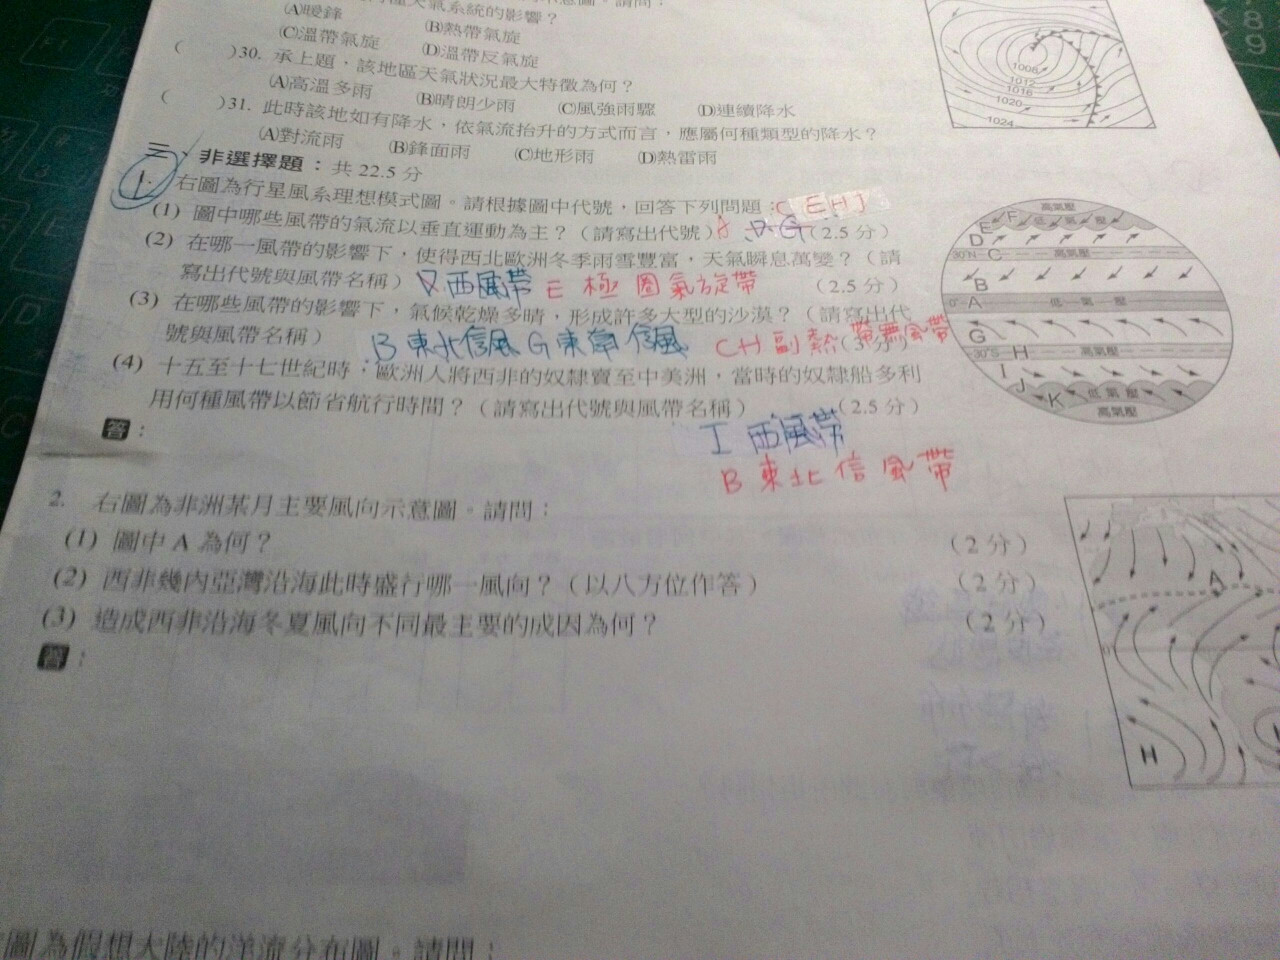 天氣系統的影響？
(A)暖鋒
(B)熱帶氣旋
(C)溫帶氣旋
(D)溫帶反氣旋
( )30. 承上題，該地區天氣狀況最大特徵為何？
(A)高溫多雨 (B)晴朗少雨 (C)風強雨驟 (D)連續降水
( )31. 此時該地如有降水，依氣流抬升的方式而言，應屬何種類型的降水？
(A)對流雨 (B)鋒面雨 (C)地形雨 (D)熱雷雨
三、非選擇題：共 22.5 分
1. 右圖為行星風系理想模式圖。請根據圖中代號，回答下列問題：C EHJ
(1) 圖中哪些風帶的氣流以垂直運動為主？（請寫出代號）A G (2.5 分)
(2) 在哪一風帶的影響下，使得西北歐洲冬季雨雪豐富，天氣瞬息萬變？（請
寫出代號與風帶名稱） 西風帶 E 極圈氣旋帶 (2.5 分)
(3) 在哪些風帶的影響下，氣候乾燥多晴，形成許多大型的沙漠？（請寫出代
號與風帶名稱） B 東北信風 G 東南信風 CH 副熱帶無風帶 (3 分)
(4) 十五至十七世紀時，歐洲人將西非的奴隸賣至中美洲，當時的奴隸船多利
用何種風帶以節省航行時間？（請寫出代號與風帶名稱） (2.5 分)
I 西風帶
答：
B 東北信風帶
2. 右圖為非洲某月主要風向示意圖。請問：
(1) 圖中 A 為何？ (2 分)
(2) 西非幾內亞灣沿海此時盛行哪一風向？（以八方位作答） (2 分)
(3) 造成西非沿海冬夏風向不同最主要的成因為何？ (2 分)
答：
圖為假想大陸的洋流分布圖。請問：
1008
1012
1016
1020
1024
高氣壓
F 低氣壓
E
D
30°N C 高氣壓
B
0° A 低氣壓
G
30°S H 高氣壓
I
J
K 低氣壓
高氣壓
A
0°
H